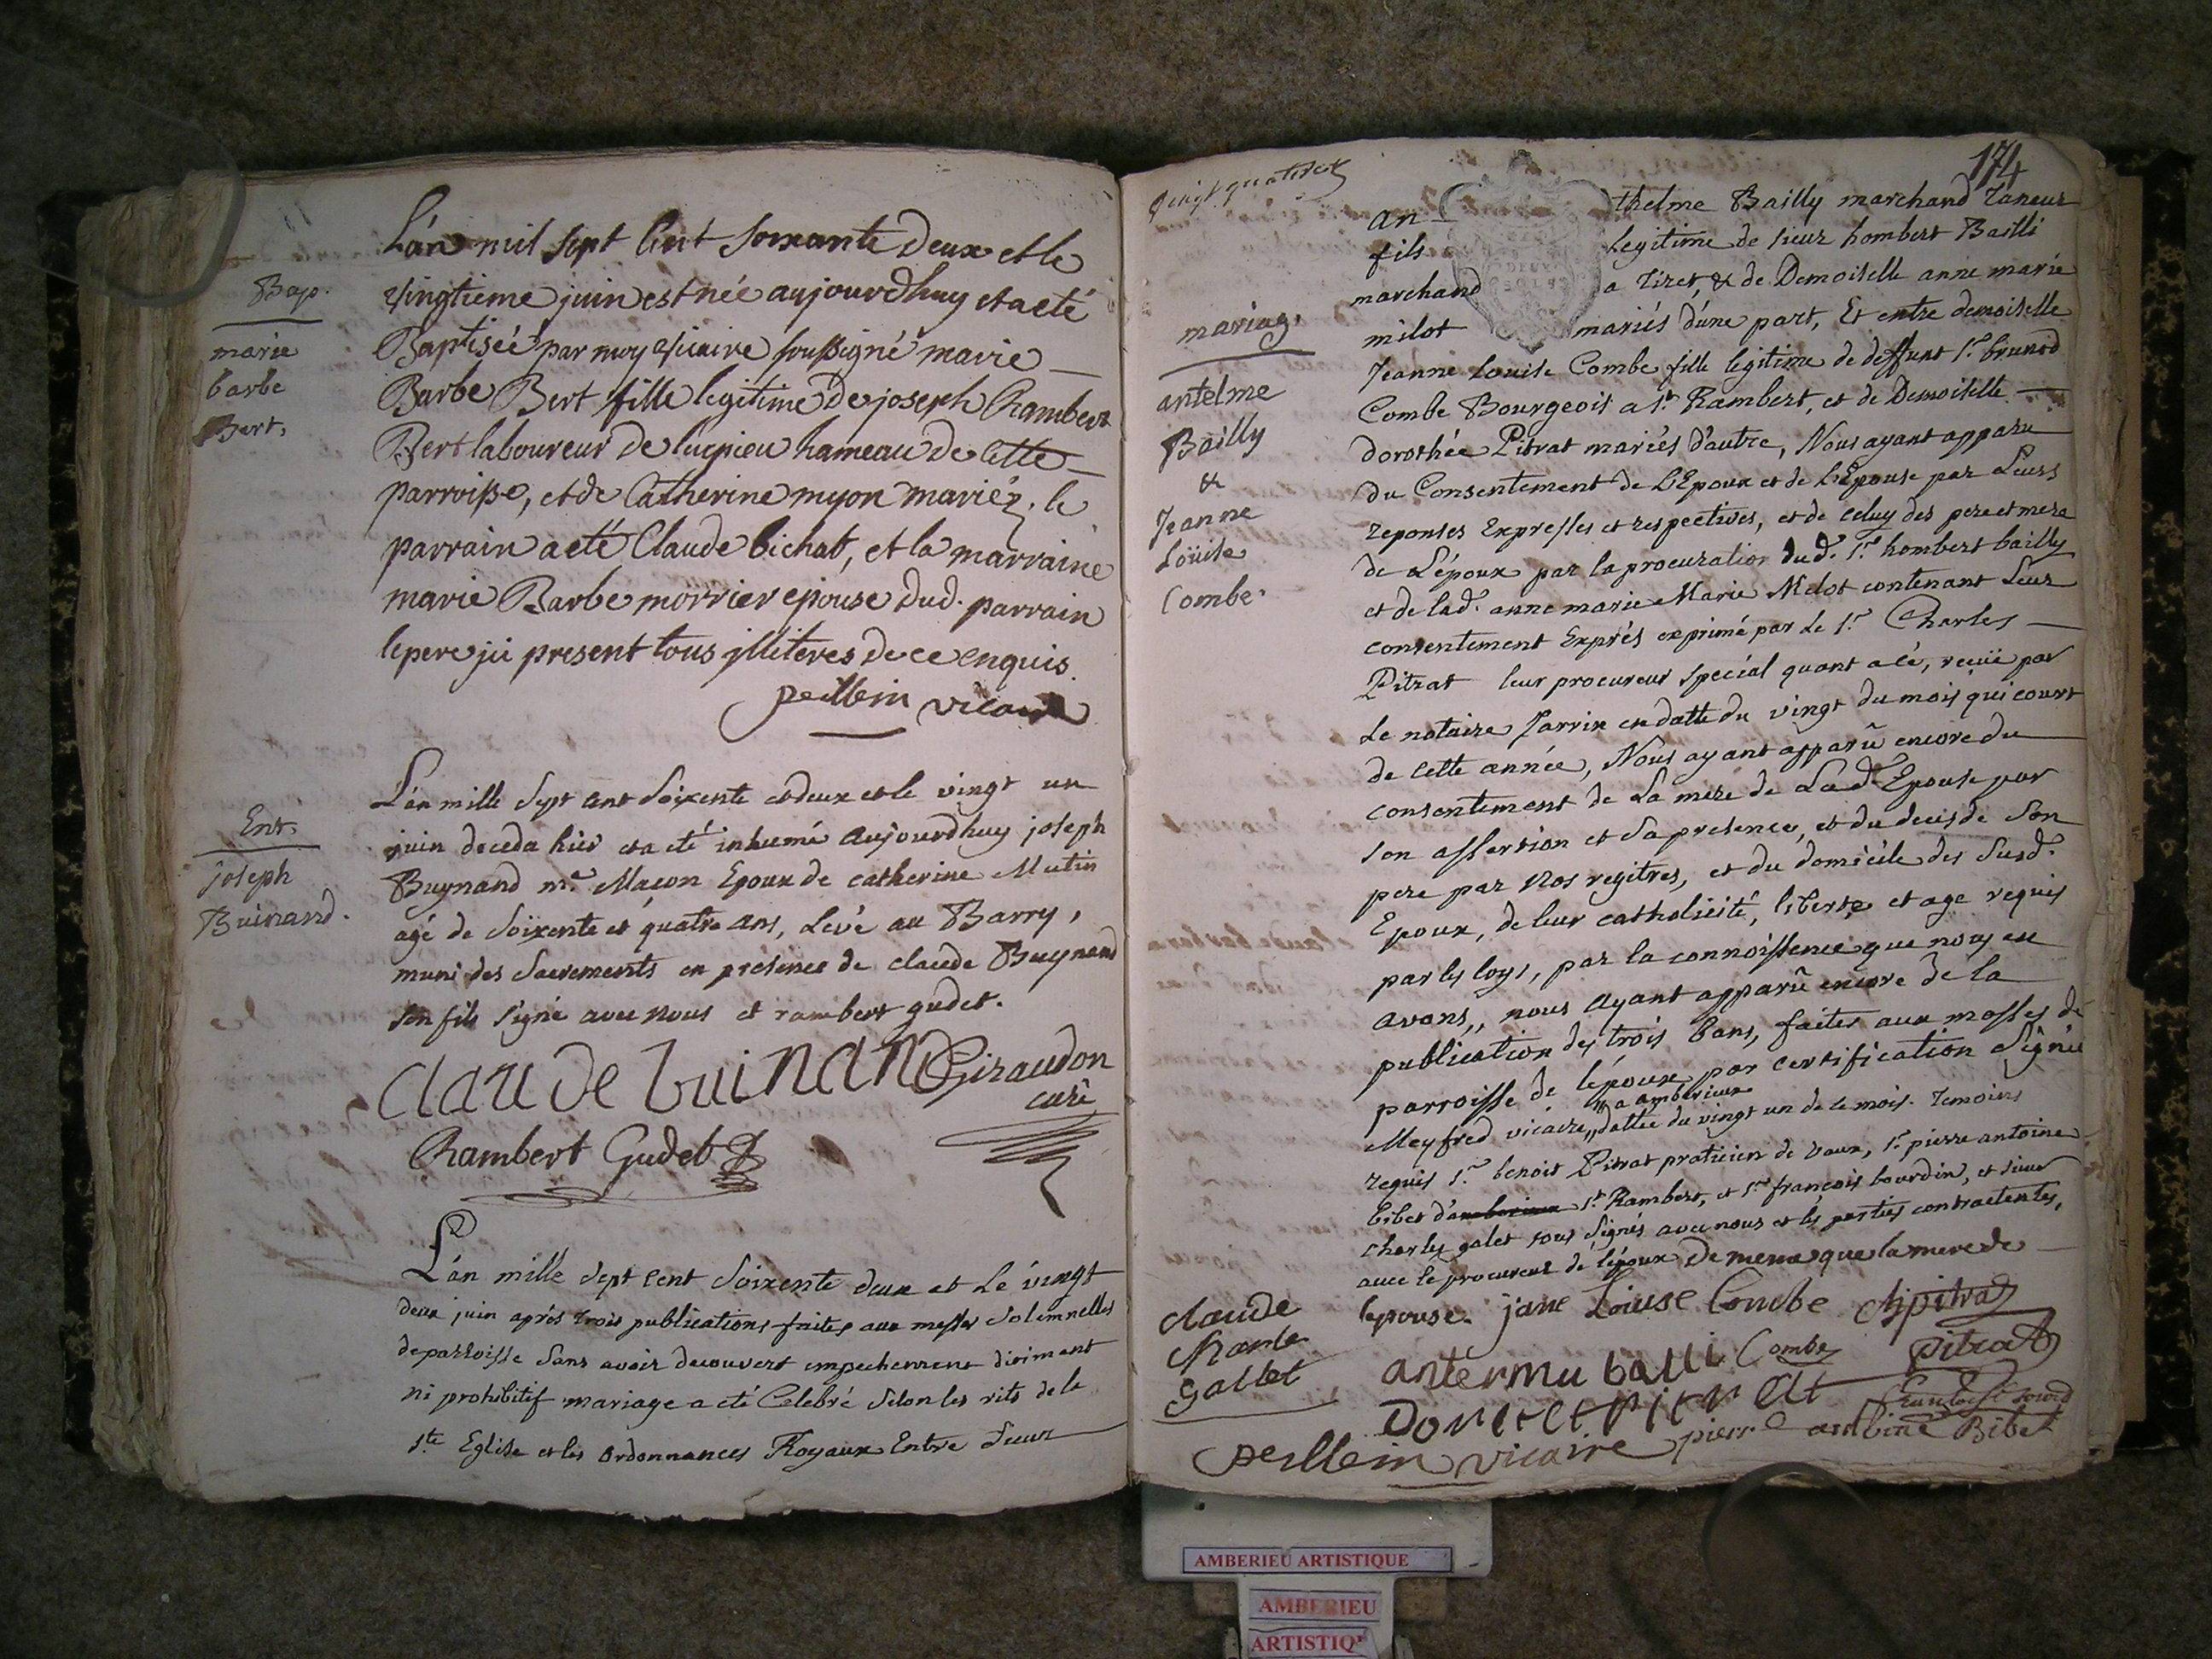 Bap.
marie
barbe
Bert.
L'an mil sept Cent soixante deux et le
vingtieme juin est née aujourdhuy et a eté
Baptiséé par moy vicaire soussigné marie
Barbe Bert fille legitime de joseph Rambert
Bert laboureur de lugnieu hameau de Cette
parroisse, et de Catherine myon mariéz. le
parrain a eté Claude bichat, et la marraine
marie Barbe morrier epouse dud. parrain
le pere ji present tous illiteres de ce enquis.
peillein vicaire
Ent.
joseph
Buinand.
L'an mille Sept cent Soixente et deux et le vingt un
juin deceda hier et a eté inhumé aujourdhuy joseph
Buynand me. Maçon Epoux de catherine Mutin
agé de Soixente et quatre ans, Levé au Barry,
muni des Sacrements en présence de claude Buynand
son fils signé avec nous et rambert gudet.
Claude buinand Giraudon
curé
Rambert Gudet
L'an mille Sept Cent Soixente deux et Le vingt
deux juin aprés trois publications faites aux messes Solemnelles
de parroisse Sans avoir decouvert empechement dirimant
ni prohibitif mariage a eté Celebré Selon les rits de la
ste. Eglise et les ordonnances Royaux Entre Sieur
vingt quatre
174
mariag.
antelme
Bailly
&
Jeanne
Loüise
Combe.
an thelme Bailly marchand Taneur
fils Legitime de sieur hombert Bailli
marchand a Tiret, & de Demoiselle anne marie
milot mariés d'une part, Et entre demoiselle
Jeanne Louise Combe fille legitime de deffunt Sr.
Combe Bourgeois a St. Rambert, et de Demoiselle
dorothée Pitrat mariés d'autre, Nous ayant apparu
du Consentement de L'Epoux et de L'Epouse par Leurs
reponses Expresses et respectives, et de celuy des pere et mere
de L'époux par la procuration dud. Sr. hombert bailly
et de lad. anne marie Marie Melot contenant Leur
consentement Exprés exprimé par Le Sr. Charles
Pitrat leur procureur special quant a cé, reçüe par
Le notaire Jarrin en datte du vingt du mois qui court
de cette année, Nous ayant apparû encore du
consentement de La mere de Lad. Epouse par
son assertion et Sa presence, et du decis de Son
pere par Nos regitres, et du domicile des Susd.
Epoux, de leur catholicité, liberté, et age requis
par les loys, par la connoissence que nous en
avons, nous ayant apparû encore de la
publication des trois bans, faites aux messes de
parroisse de l'époux par certification Signée
a amberieux
Meyfred vicaire, dattée du vingt un de ce mois. Temoins
requis Sr. benoit Pitrat praticien de vaux, Sr. pierre antoine
bibet d'amberieux St. Rambert, et Sr. francois bourdin, et sieur
charles galet tous Signés avec nous et les parties contractentes,
avec le procureur de l'époux De meme que la mere de
lepouse. jane Loiuse Combe Chpitrat
claude
Charle
Gallet
antermu balli Combe Pitrat
Doroteé Pitrat
peillein vicaire pierre antoine Bibet
AMBERIEU ARTISTIQUE
AMBERIEU
ARTISTIQ